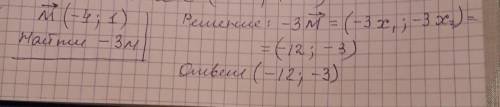 M⃗ (-4; 1)
Найти -3м
Решение: -3M⃗ = (-3x₁; -3x₂)=
= (-12; -3)
Ответ (-12; -3)